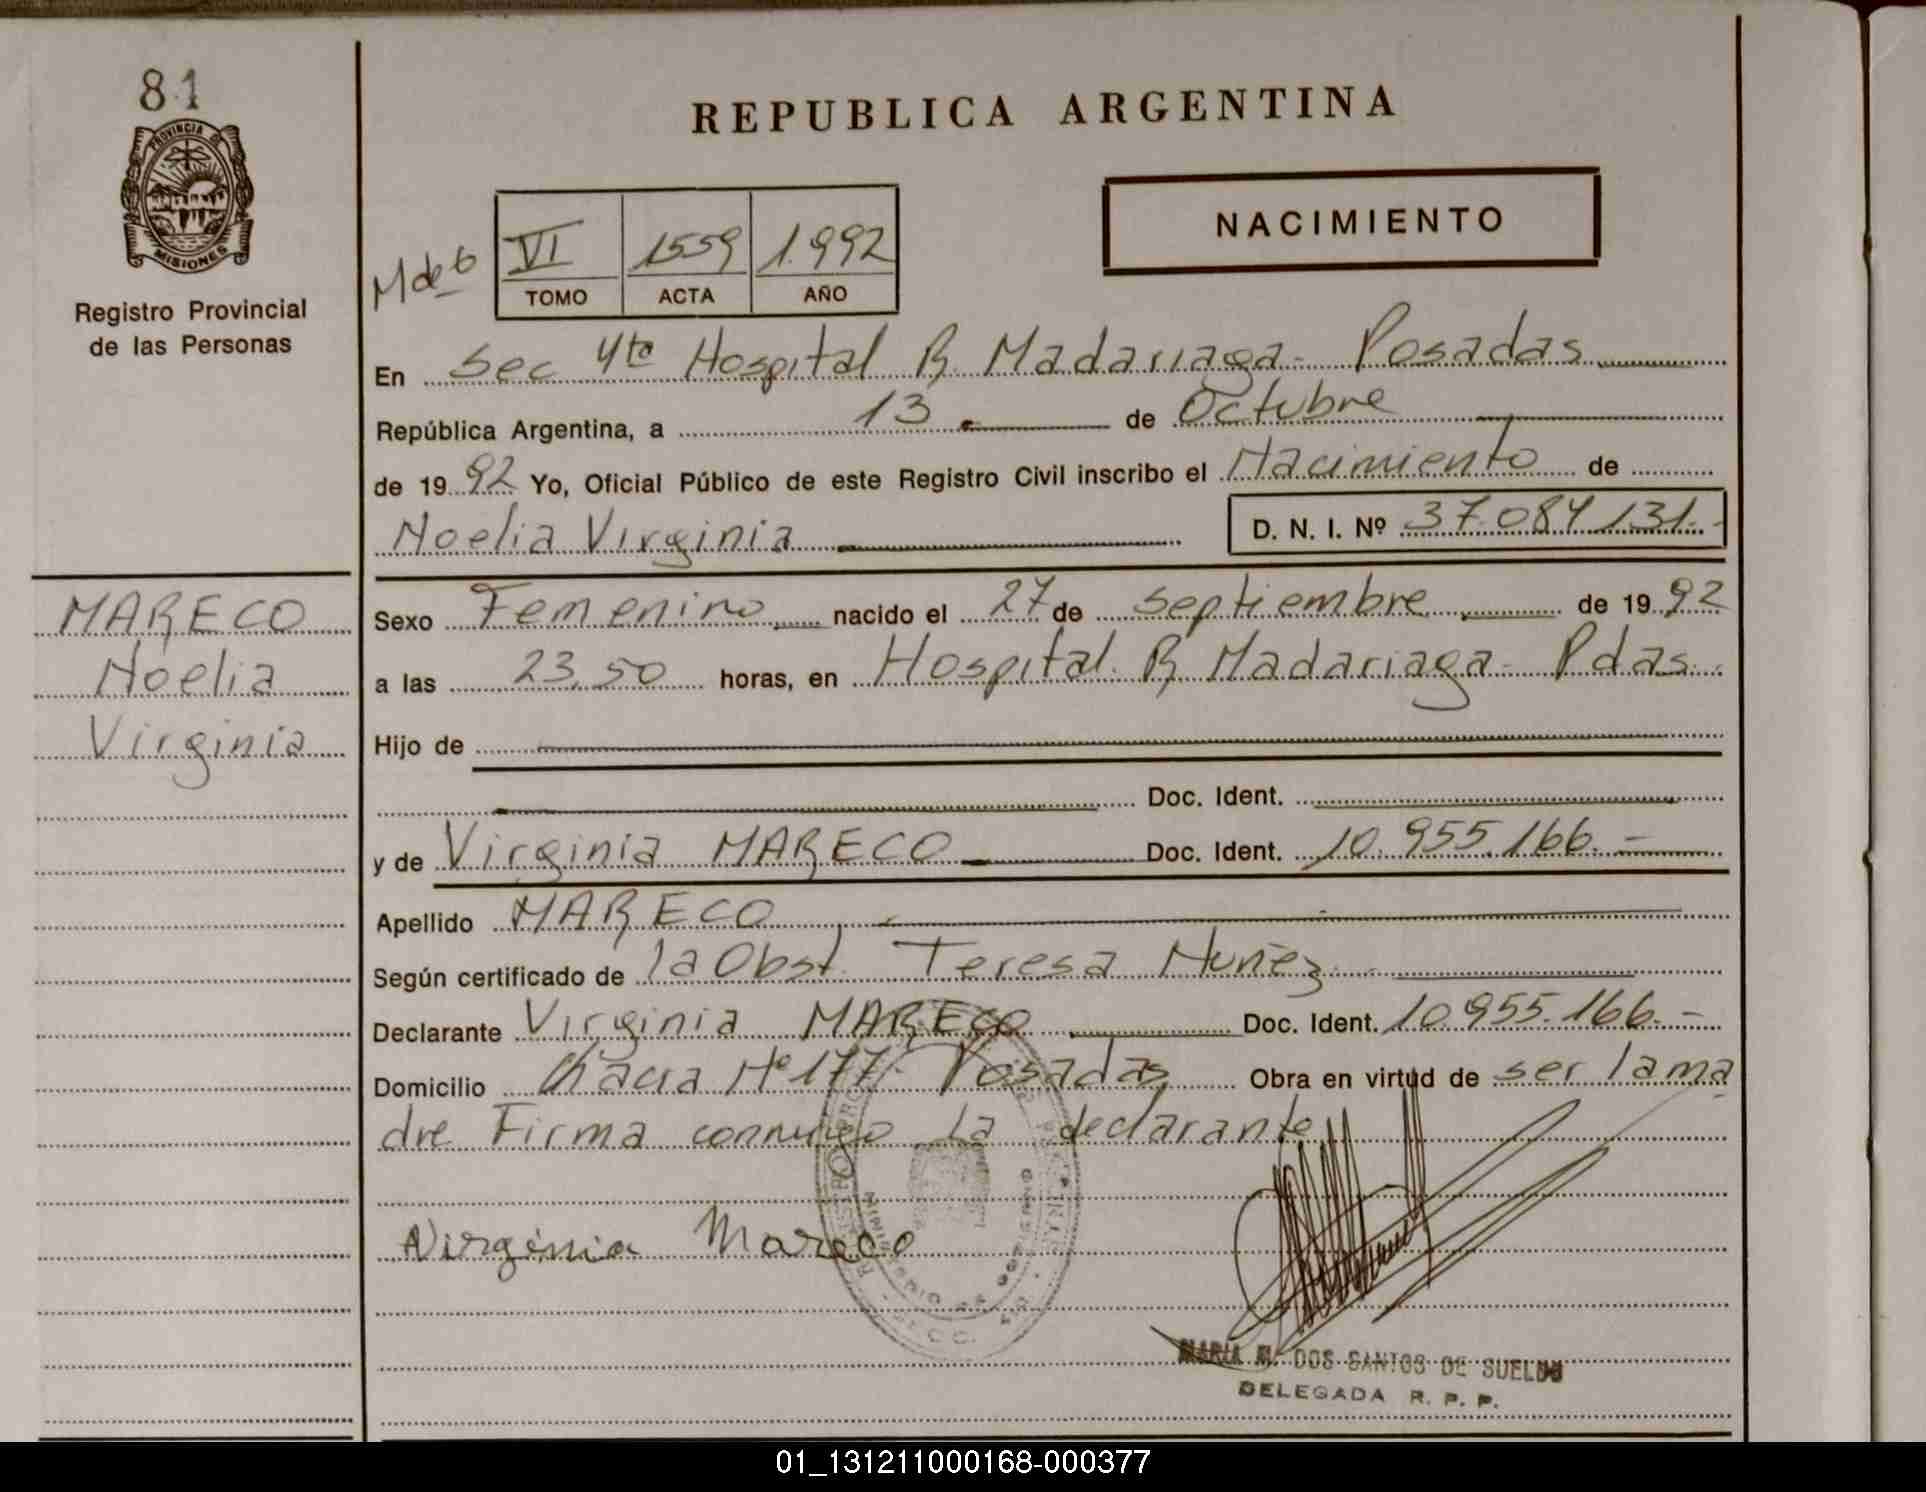 81
PROVINCIA DE
MISIONES
Registro Provincial
de las Personas
MARECO
Noelia
Virginia
REPUBLICA ARGENTINA
NACIMIENTO
VI 1559 1.992
TOMO ACTA AÑO
En Sec 4ta Hospital R. Madariaga - Posadas
República Argentina, a 13 de Octubre
de 1992 Yo, Oficial Público de este Registro Civil inscribo el Nacimiento de
Noelia Virginia D. N. I. Nº 37.084.131.-
Sexo Femenino nacido el 27 de Septiembre de 1992
a las 23,50 horas, en Hospital R. Madariaga - Pdas.
Hijo de
Doc. Ident.
y de Virginia MARECO Doc. Ident. 10.955.166.-
Apellido MARECO
Según certificado de la Obst. Teresa Nuñez
Declarante Virginia MARECO Doc. Ident. 10.955.166.-
Domicilio Chacra Nº 177- Posadas Obra en virtud de ser la ma
dre Firma conmigo la declarante
Virginia Mareco
MINISTERIO DE GOBIERNO
MARIA M. DOS SANTOS DE SUELDO
DELEGADA R. P. P.
01_131211000168-000377